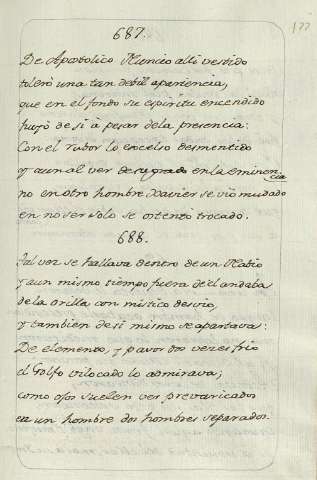 687.
177
De Apostolico Nuncio alli vestido
tolerò una tan debil apariencia,
que en el fondo su espiritu encendido
huyò de si à pesar dela presencia:
Con el rubor lo excelso desmentido
y aun al ver de su grado en la eminencia
no en otro hombre Xavier se viò mudado
en no ser solo se ostentò trocado.
688.
Tal vez se hallava dentro de un Navio
y a un mismo tiempo fuera de el andaba
de la orilla con mistico desvio,
y tambien de si mismo se apartava:
De elemento, y pavor dos vezes frio
el Golfo vilocado lo admirava;
como ojos suelen ver prevaricados
en un hombre dos hombres separados.